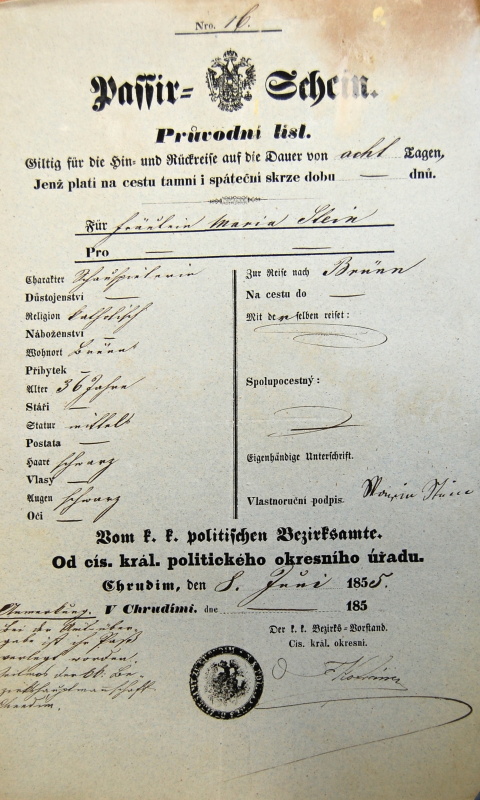 Nro. 16.
Passir-Schein.
Průvodní list.
Giltig für die Hin- und Rückreise auf die Dauer von acht Tagen,
Jenž platí na cestu tamní i spáteční skrze dobu — dnů.
Für Fräulein Maria Stein
Pro — —
Charakter Schauspielerin
Důstojenství —
Religion katholisch
Náboženství —
Wohnort Brünn
Příbytek —
Alter 36 Jahre
Stáří —
Statur mittel
Postata —
Haare schwarz
Vlasy —
Augen schwarz
Oči —
Zur Reise nach Brünn
Na cestu do —
Mit denselben reiset:
Spolupocestný:
Eigenhändige Unterschrift.
Vlastnoruční podpis. Maria Stein
Vom k. k. politischen Bezirksamte.
Od cís. král. politického okresního úřadu.
Chrudim, den 8. Juni 1855.
V Chrudimi, dne — 185
Anmerkung.
Bei der Amtsüber-
gabe ist ihr Paß
verlegt worden,
seitens der Be-
zirkshauptmannschaft
Chrudim.
Der k. k. Bezirks-Vorstand.
Cís. král. okresní.